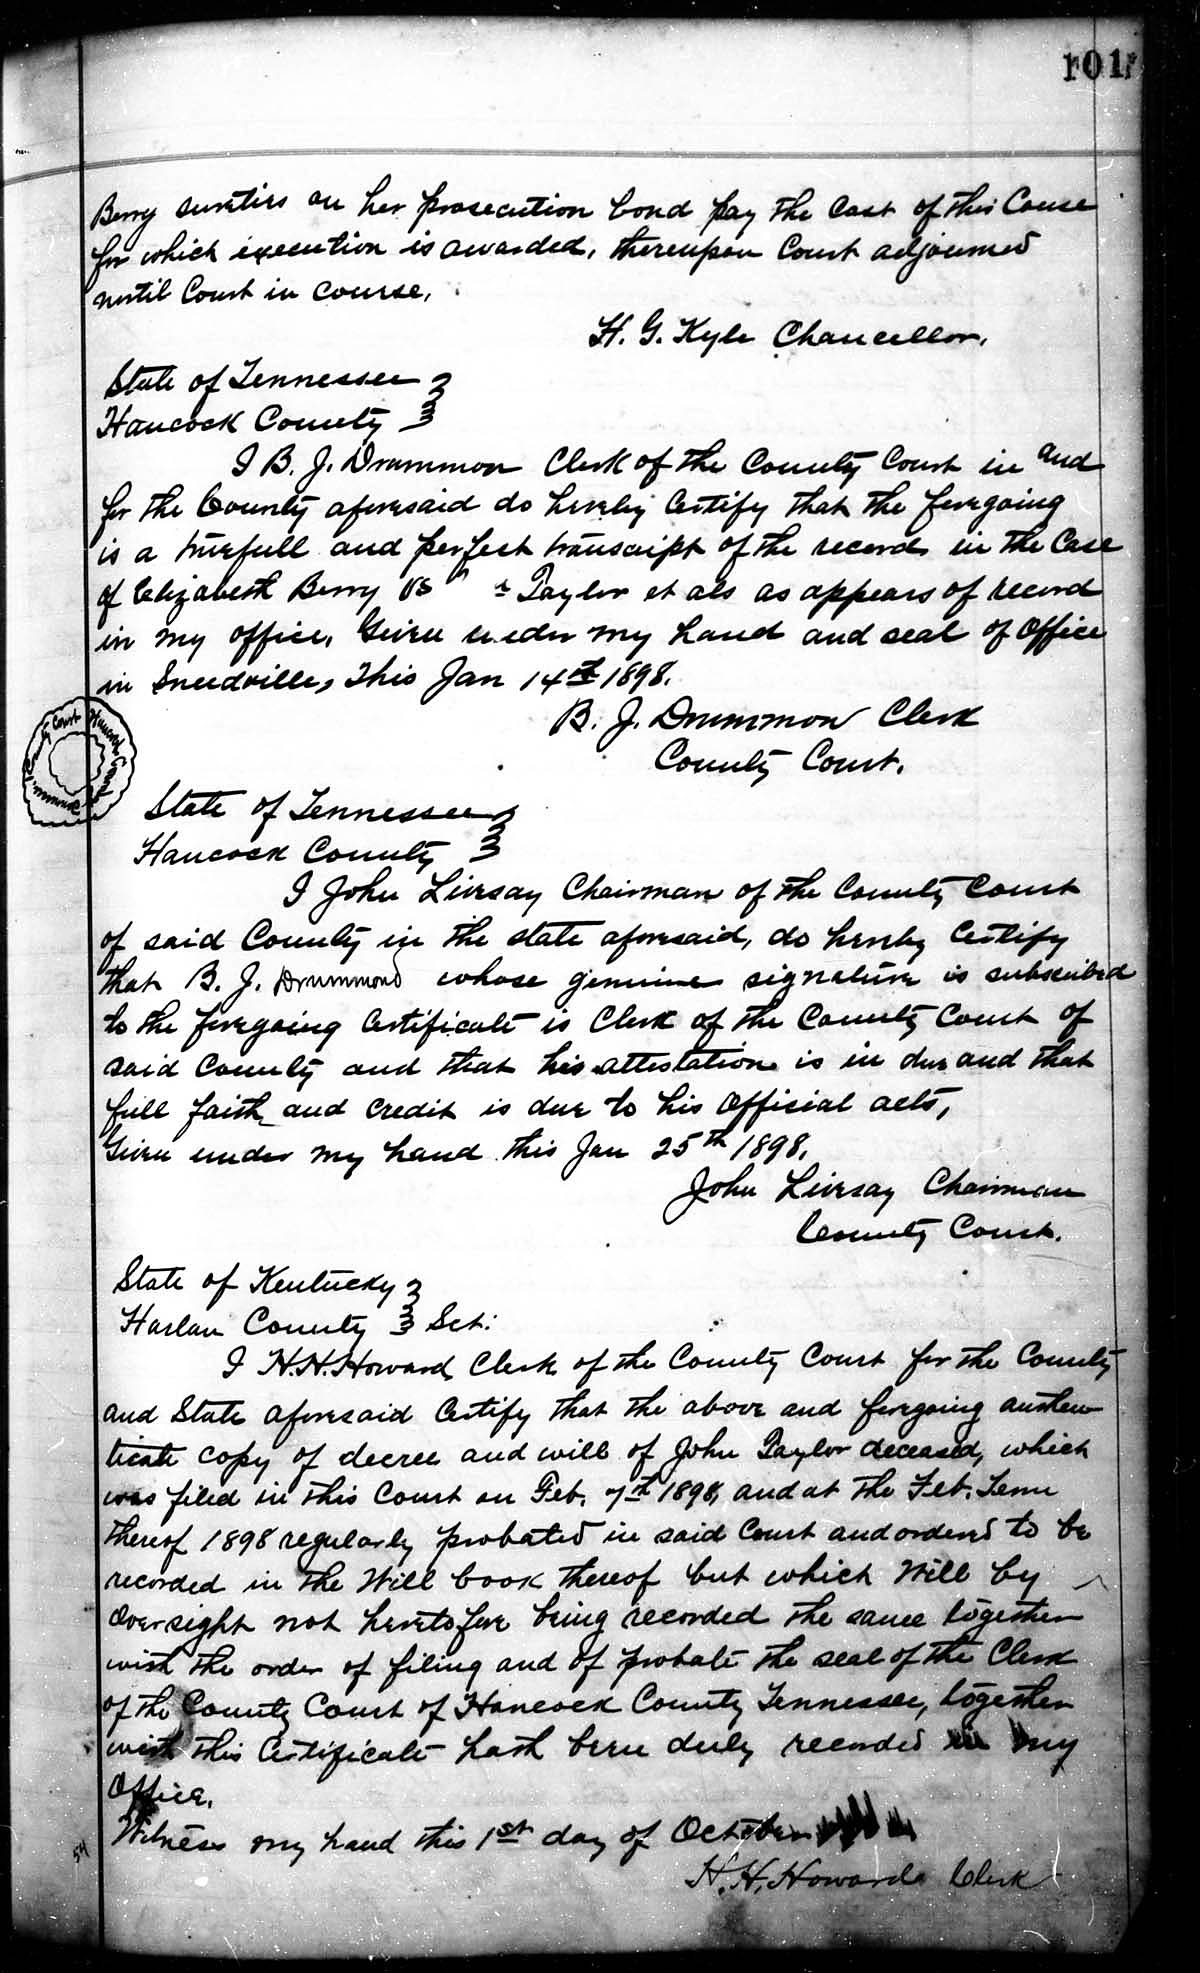 101
Berry sureties on her prosecution bond pay the Cost of this Cause
for which execution is awarded, thereupon Court adjourned
until Court in course,
H. G. Kyle Chancellor.
State of Tennessee
Hancock County
I B. J. Drummon Clerk of the County Court in and
for the County aforesaid do hereby Certify that the foregoing
is a true full and perfect transcript of the record in the Case
of Elizabeth Berry vs Taylor et als as appears of record
in my office, Given under my hand and seal of Office
in Sneedville, This Jan 14th 1898.
B. J. Drummon Clerk
County Court.
County Court Hancock County
State of Tennessee
Hancock County
I John Livesay Chairman of the County Court
of said County in the state aforesaid, do hereby Certify
that B. J. Drummond whose genuine signature is subscribed
to the foregoing Certificate is Clerk of the County Court of
said County and that his attestation is in due and that
full faith and credit is due to his Official acts,
Given under my hand this Jan 25th 1898,
John Livesay Chairman
County Court.
State of Kentucky
Harlan County Sct:
I H. H. Howard Clerk of the County Court for the County
and State aforesaid Certify that the above and foregoing authen
ticate copy of decree and will of John Taylor deceased, which
was filed in this Court on Feb. 7th 1898, and at the Feb. Term
thereof 1898 regularly probated in said Court and ordered to be
recorded in the Will book thereof but which Will by
Oversight not heretofore being recorded the same together
with the order of filing and of probate the seal of the Clerk
of the County Court of Hancock County Tennessee, together
with this Certificate hath been duly recorded in my
Office.
Witness my hand this 1st day of October
H. H. Howard Clerk